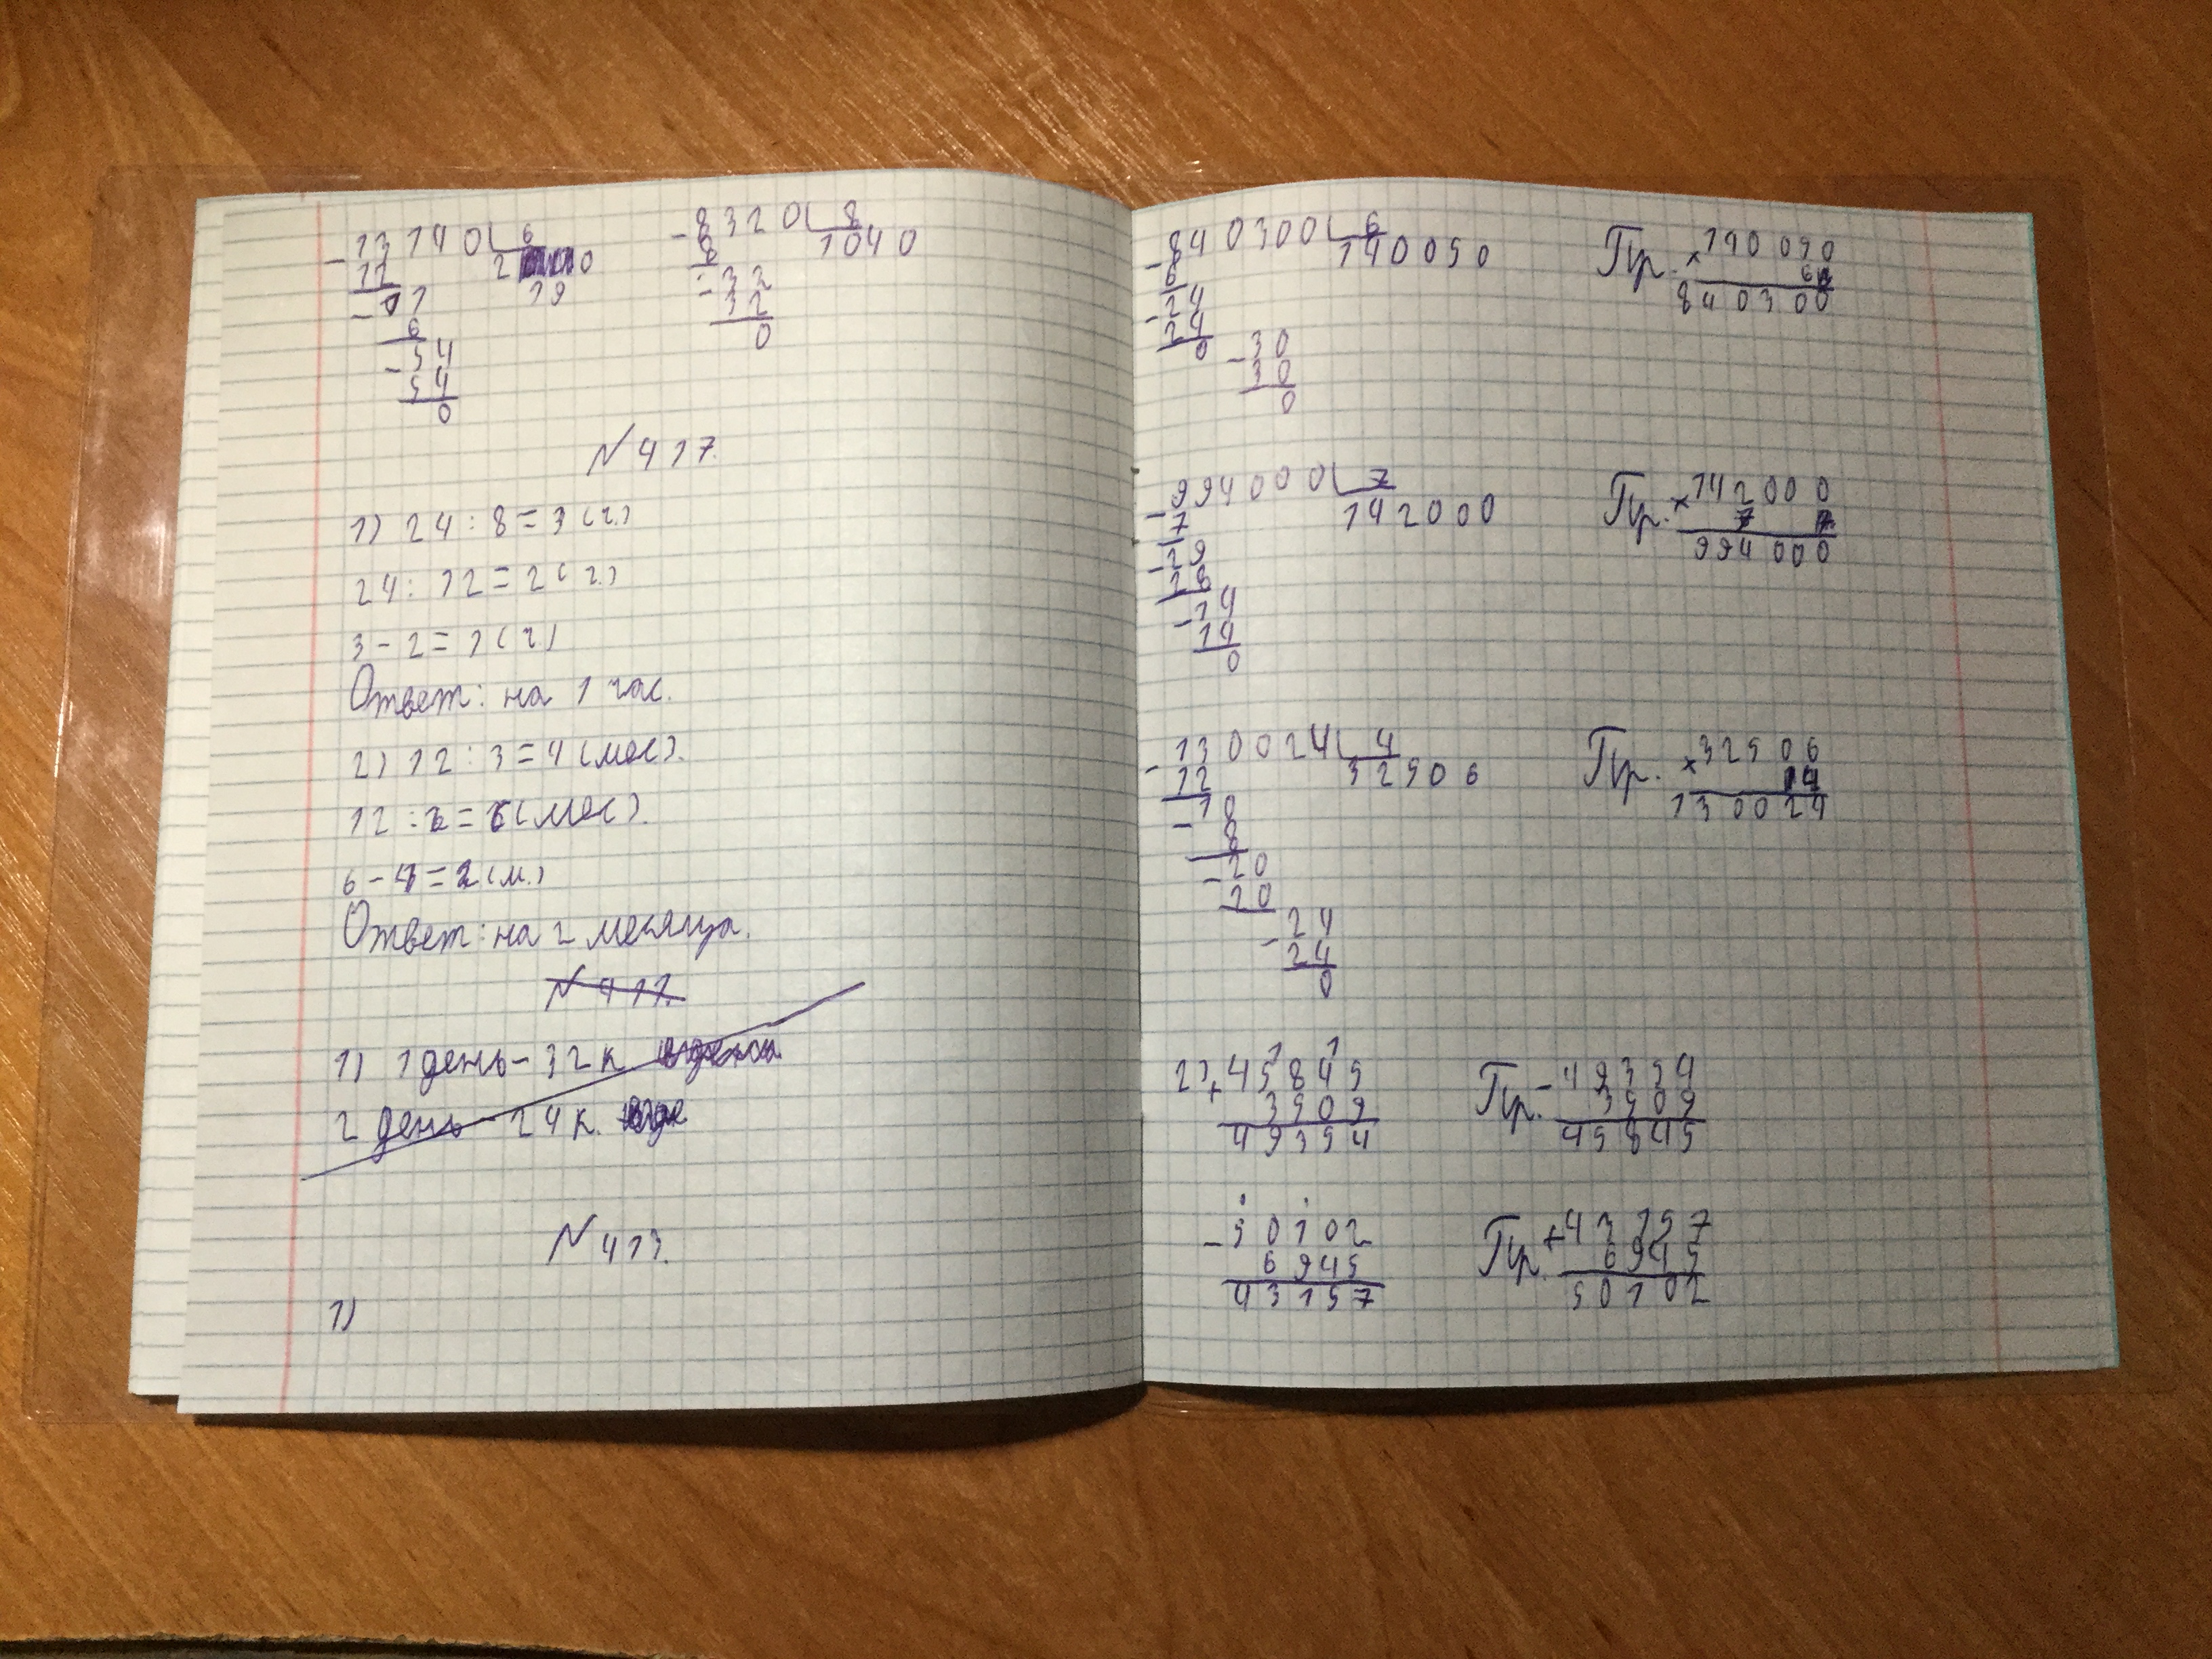 13140 6
12 2190
11
6
54
54
0
8320 8
8 1040
32
32
0
№ 417.
1) 24 : 8 = 3 (ч.)
24 : 12 = 2 (ч.)
3 - 2 = 1 (ч)
Ответ: на 1 час.
2) 12 : 3 = 4 (мес).
12 : 2 = 6 (мес).
6 - 4 = 2 (м.)
Ответ: на 2 месяца.
№ 417.
1) 1 день - 32 к
2 день - 24 к.
№ 413.
1)
840300 6
6 140050
24
24
0
30
30
0
Пр. × 140050
6
840300
994000 7
7 142000
29
28
14
14
0
Пр. × 142000
7
994000
130024 4
12 32506
10
8
20
20
24
24
0
Пр. × 32506
4
130024
1 1
2) + 45845
3509
49354
Пр. - 49354
3509
45845
- 50102
6945
43157
Пр. + 43157
6945
50102